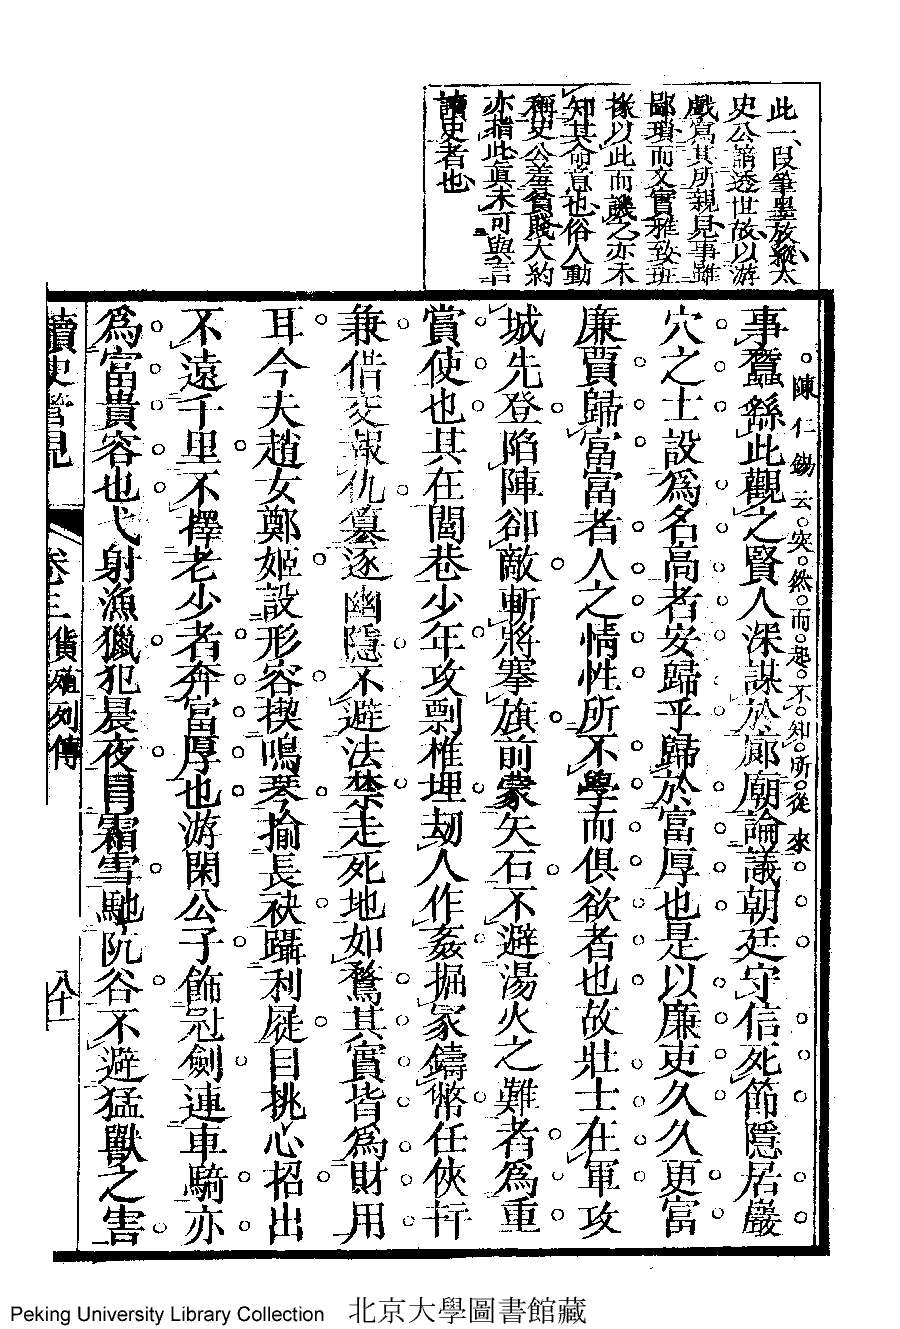 此一段筆墨放縱太
史公諳透世故以游
戲寫其所親見事雖
鄙瑣而文實雅致班
掾以此而譏之亦未
知其命意也俗人動
稱史公羞貧賤大約
亦指此眞未可與言
讀史者也
陳仁錫云突然而起不知所從來
事蠶繇此觀之賢人深謀於廊廟論議朝廷守信死節隱居巖
穴之士設爲名高者安歸乎歸於富厚也是以廉吏久久更富
廉賈歸富富者人之情性所不學而俱欲者也故壯士在軍攻
城先登陷陣卻敵斬將搴旗前蒙矢石不避湯火之難者爲重
賞使也其在閭巷少年攻剽椎埋劫人作姦掘冢鑄幣任俠幷
兼借交報仇篡逐幽隱不避法禁走死地如鶩其實皆爲財用
耳今夫趙女鄭姬設形容揳鳴琴揄長袂躡利屣目挑心招出
不遠千里不擇老少者奔富厚也游閑公子飾冠劍連車騎亦
爲富貴容也弋射漁獵犯晨夜冒霜雪馳阬谷不避猛獸之害
讀史管見 卷三 貨殖列傳 八十
Peking University Library Collection 北京大學圖書館藏